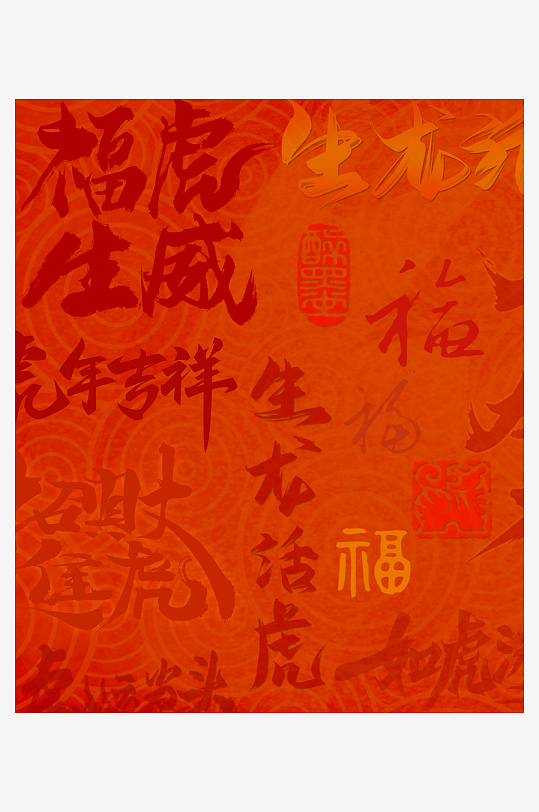 福虎
生威
生龙活
福
虎年吉祥
生龙活虎
福
招财
进虎
福
如虎添